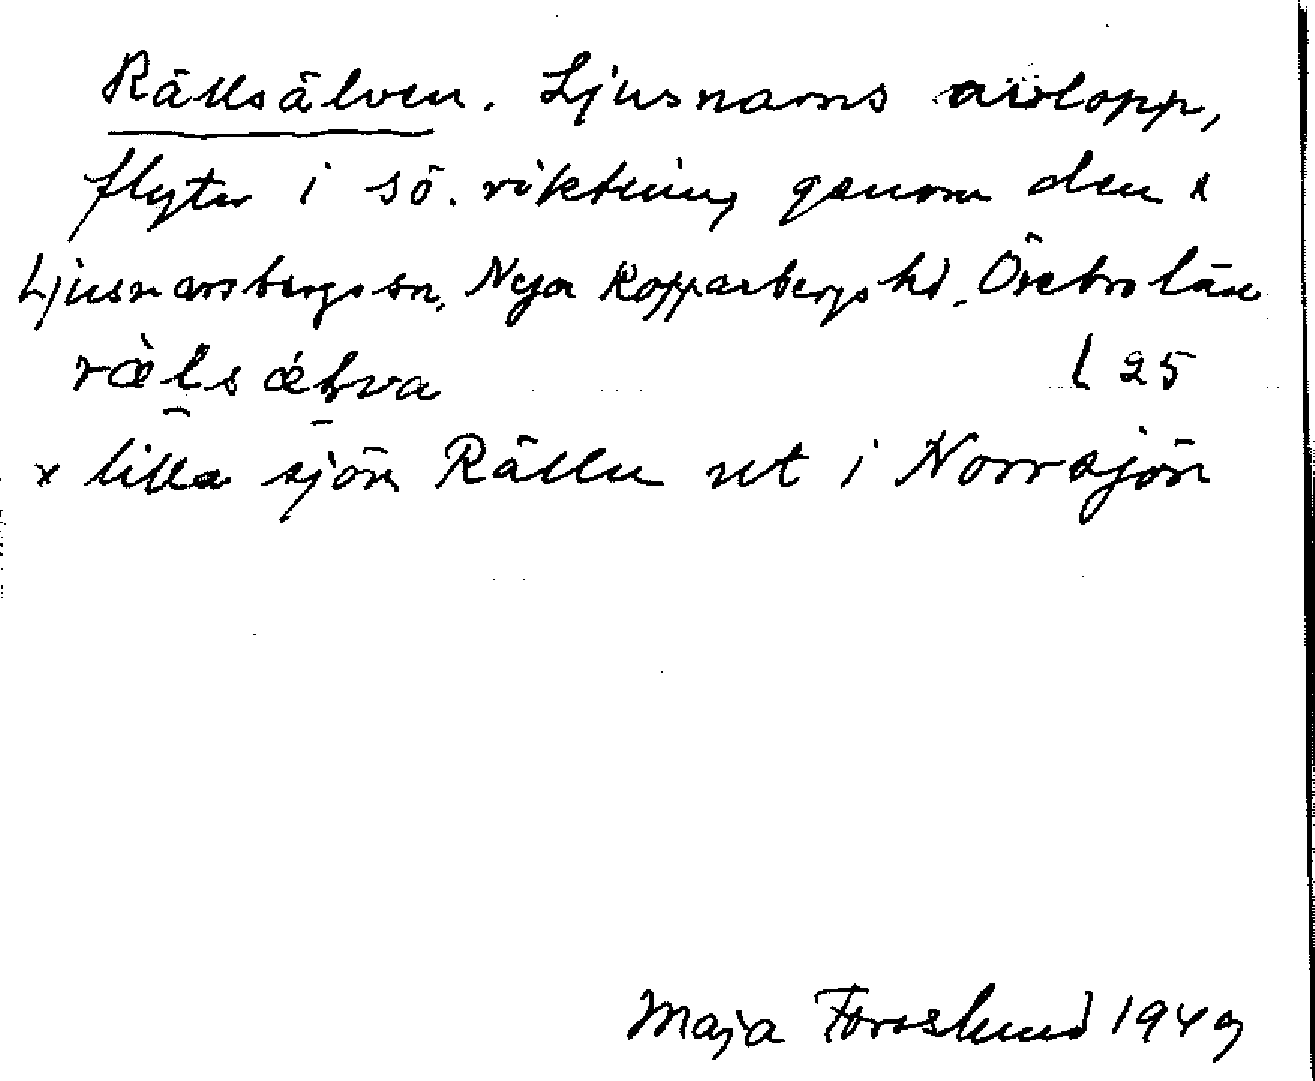 Rällsälven. Ljusnarns avlopp,
flyter i sö. riktning genom den x
Ljusnarsbergs sn, Nya Kopparbergs hd. Örebro län
rælsælva l 25
x lilla sjön Rällen ut i Norrsjön
Maja Forsslund 1949